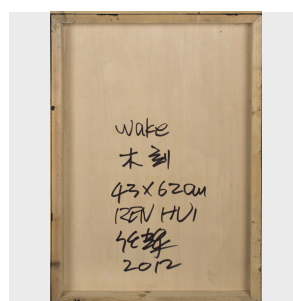 wake
木刻
43x62cm
REN HUI
2012